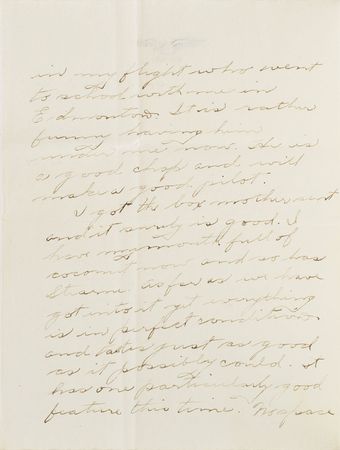 in my flight who went
to school with me in
Edmonton. It is rather
funny having him
under me now. He is
a good chap and will
make a good pilot.
I got the box mother sent
and it surely is good. I
have my mouth full of
coconut now and so has
Stearne. As far as we have
got into it yet everything
is in perfect condition
and tastes just as good
as it possibly could. It
has one particularly good
feature this time. No